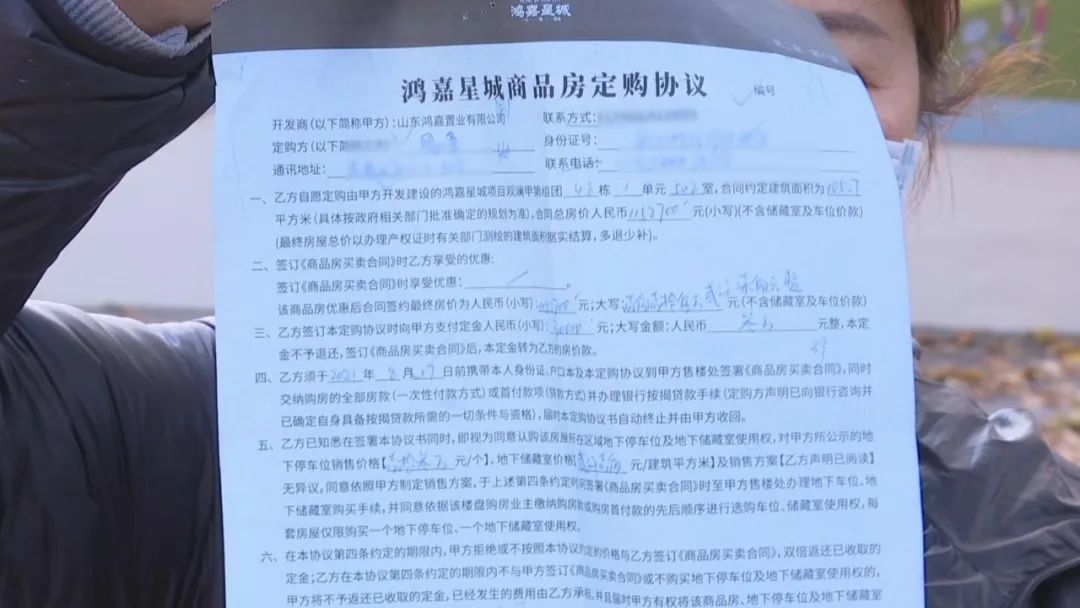 鸿嘉星城
鸿嘉星城商品房定购协议
编号
开发商(以下简称甲方):山东鸿嘉置业有限公司 联系方式:
定购方(以下简 身份证号:
通讯地址: 联系电话:
一、乙方自愿定购由甲方开发建设的鸿嘉星城项目观澜甲第组团 48 栋 1 单元 502 室,合同约定建筑面积为105.7
平方米(具体按政府相关部门批准确定的规划为准),合同总房价人民币1112700元(小写)(不含储藏室及车位价款)
(最终房屋总价以办理产权证时有关部门测绘的建筑面积据实结算,多退少补)。
二、签订《商品房买卖合同》时乙方享受的优惠:
签订《商品房买卖合同》时享受优惠: 。
该商品房优惠后合同签约最终房价为人民币(小写): 元;大写: 元(不含储藏室及车位价款)
三、乙方签订本定购协议时向甲方支付定金人民币(小写):30000元;大写金额:人民币 叁万 元整,本定
金不予退还,签订《商品房买卖合同》后,本定金转为乙方的房价款。
四、乙方须于2021年 8 月 17 日前携带本人身份证、户口本及本定购协议到甲方售楼处签署《商品房买卖合同》,同时
交纳购房的全部房款(一次性付款方式)或首付款项(贷款方式)并办理银行按揭贷款手续(定购方声明已向银行咨询并
已确定自身具备按揭贷款所需的一切条件与资格),届时本定购协议书自动终止并由甲方收回。
五、乙方已知悉在签署本协议书同时,即视为同意认购该房屋所在区域地下停车位及地下储藏室使用权,对甲方所公示的地
下停车位销售价格【 元/个】、地下储藏室价格【 元/建筑平方米】及销售方案【乙方声明已阅读】
无异议,同意依照甲方制定销售方案,于上述第四条约定时间签署《商品房买卖合同》时至甲方售楼处办理地下车位、地
下储藏室购买手续,并同意依据该楼盘购房业主缴纳购房款或购房首付款的先后顺序进行选购车位、储藏室使用权,每
套房屋仅限购买一个地下停车位、一个地下储藏室使用权。
六、在本协议第四条约定的期限内,甲方拒绝或不按照本协议约定的价格与乙方签订《商品房买卖合同》,双倍返还已收取的
定金;乙方在本协议第四条约定的期限内不与甲方签订《商品房买卖合同》或不购买地下停车位及地下储藏室使用权的,
甲方将不予退还已收取的定金,已经发生的费用由乙方承担,并且届时甲方有权将该商品房、地下停车位及地下储藏室